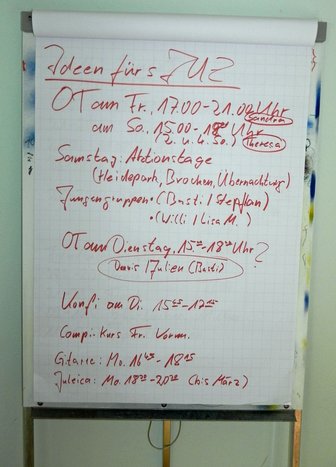 Ideen für's JUZ
OT am Fr., 17.00-21.00 Uhr Sandra
am So., 15.00-18⁰⁰ Uhr
(2. u. 4. So.) Theresa
Samstag: Aktionstage
(Heidepark, Brocken, Übernachtung)
Jungengruppen • (Basti | Stephan)
• (Willi | Lisa M.)
OT am Dienstag, 15³⁰-18⁰⁰ Uhr ?
Denis | Julien (Basti)
Konfi am Di. 15⁴⁵-17¹⁵
Compi-Kurs Fr. Vorm.
Gitarre: Mo. 16⁴⁵-18¹⁵
Juleica: Mo. 18³⁰-20³⁰ (bis März)